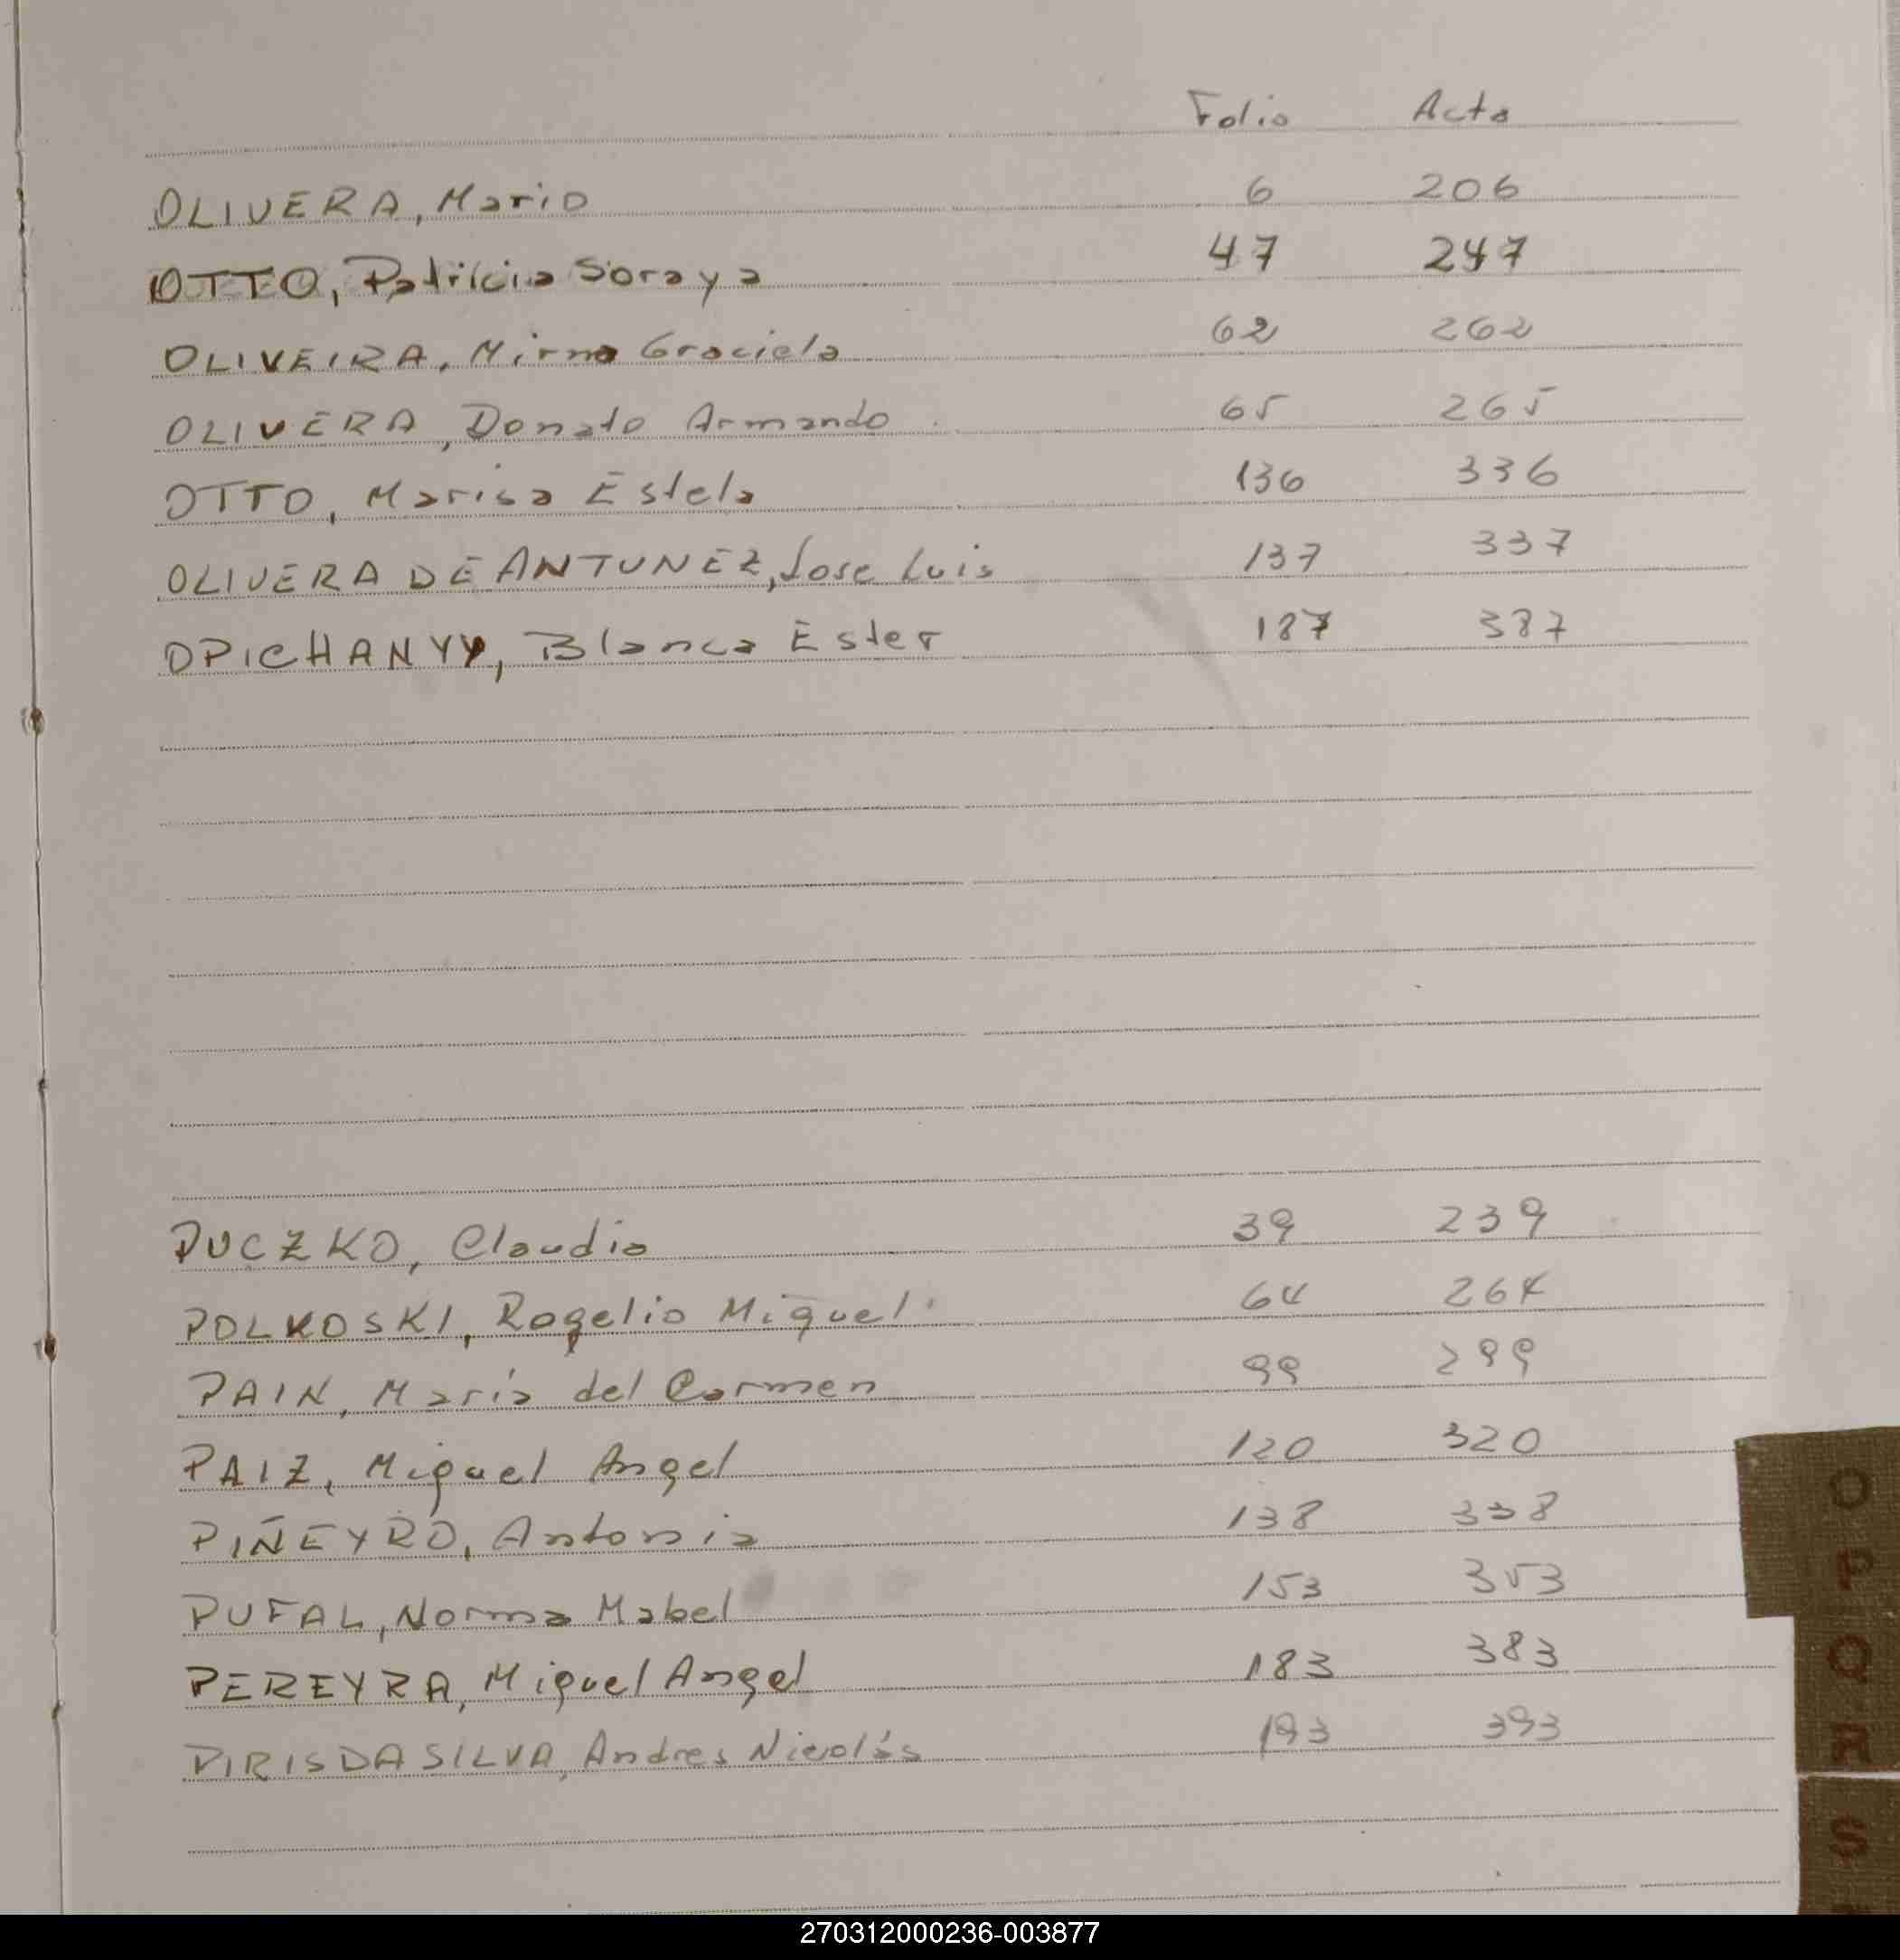 Folio Acta
OLIVERA, Mario 6 206
OTTO, Patricia Soraya 47 247
OLIVEIRA, Mirna Graciela 62 262
OLIVERA, Donato Armando 65 265
OTTO, Marisa Estela 136 336
OLIVERA DE ANTUNEZ, Jose Luis 137 337
OPICHANYY, Blanca Ester 187 387
PUCZKO, Claudia 39 239
POLKOSKI, Rogelio Miguel 64 264
PAIN, María del Carmen 99 299
PAIZ, Miguel Angel 120 320
PIÑEYRO, Antonia 138 338
PUFAL, Norma Mabel 153 353
PEREYRA, Miguel Angel 183 383
PIRIS DA SILVA, Andres Nicolás 193 393
O
P
Q
R
S
270312000236-003877